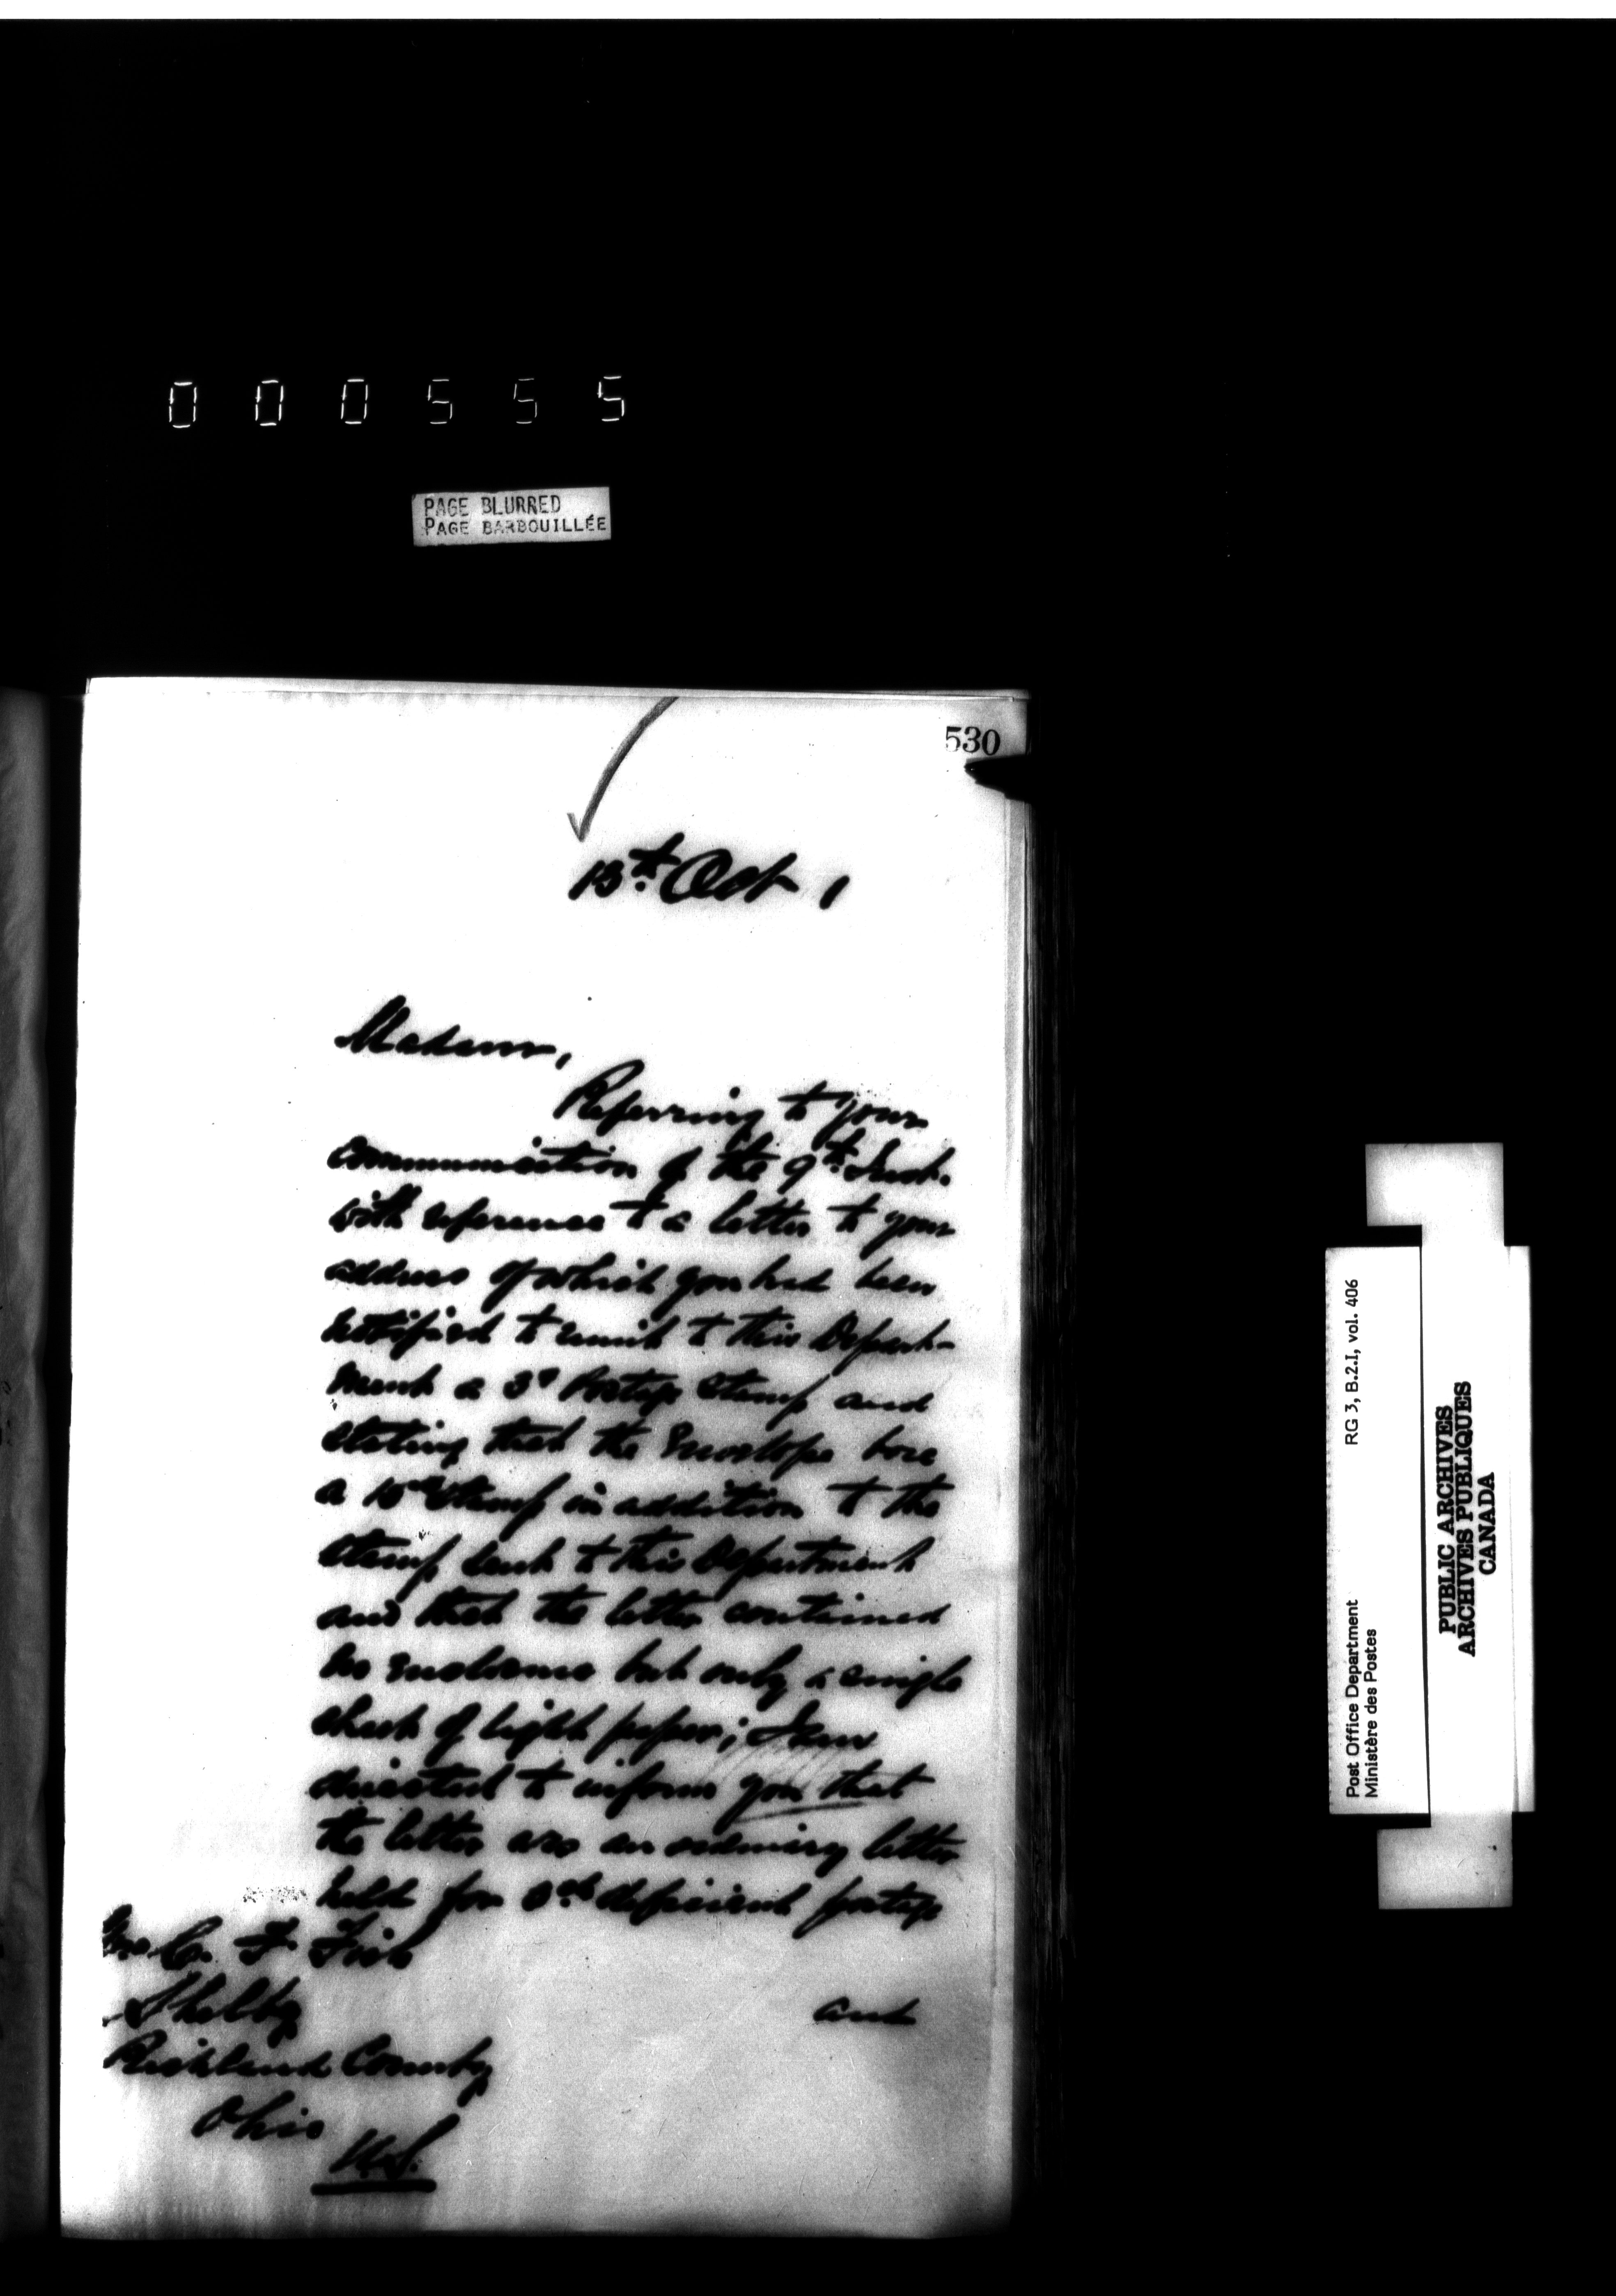 000555
PAGE BLURRED
PAGE BARBOUILLÉE
530
13th. Oct 1
Madam,
Referring to your
Communication of the 9th. Inst.
with reference to a letter to your
address of which you had been
notified to remit to this Depart-
ment a 3c Postage Stamp and
stating that the Envelope bore
a 10c Stamp in addition to the
Stamp sent to this Department
and that the letter contained
no enclosure but only a single
sheet of light paper; I am
directed to inform you that
the letter was an ordinary letter
held for 3c deficient postage
and
Mrs C. F. Fish
Shelby
Richland County
Ohio
U.S.
Post Office Department RG 3, B.2.I, vol. 406
Ministère des Postes
PUBLIC ARCHIVES
ARCHIVES PUBLIQUES
CANADA